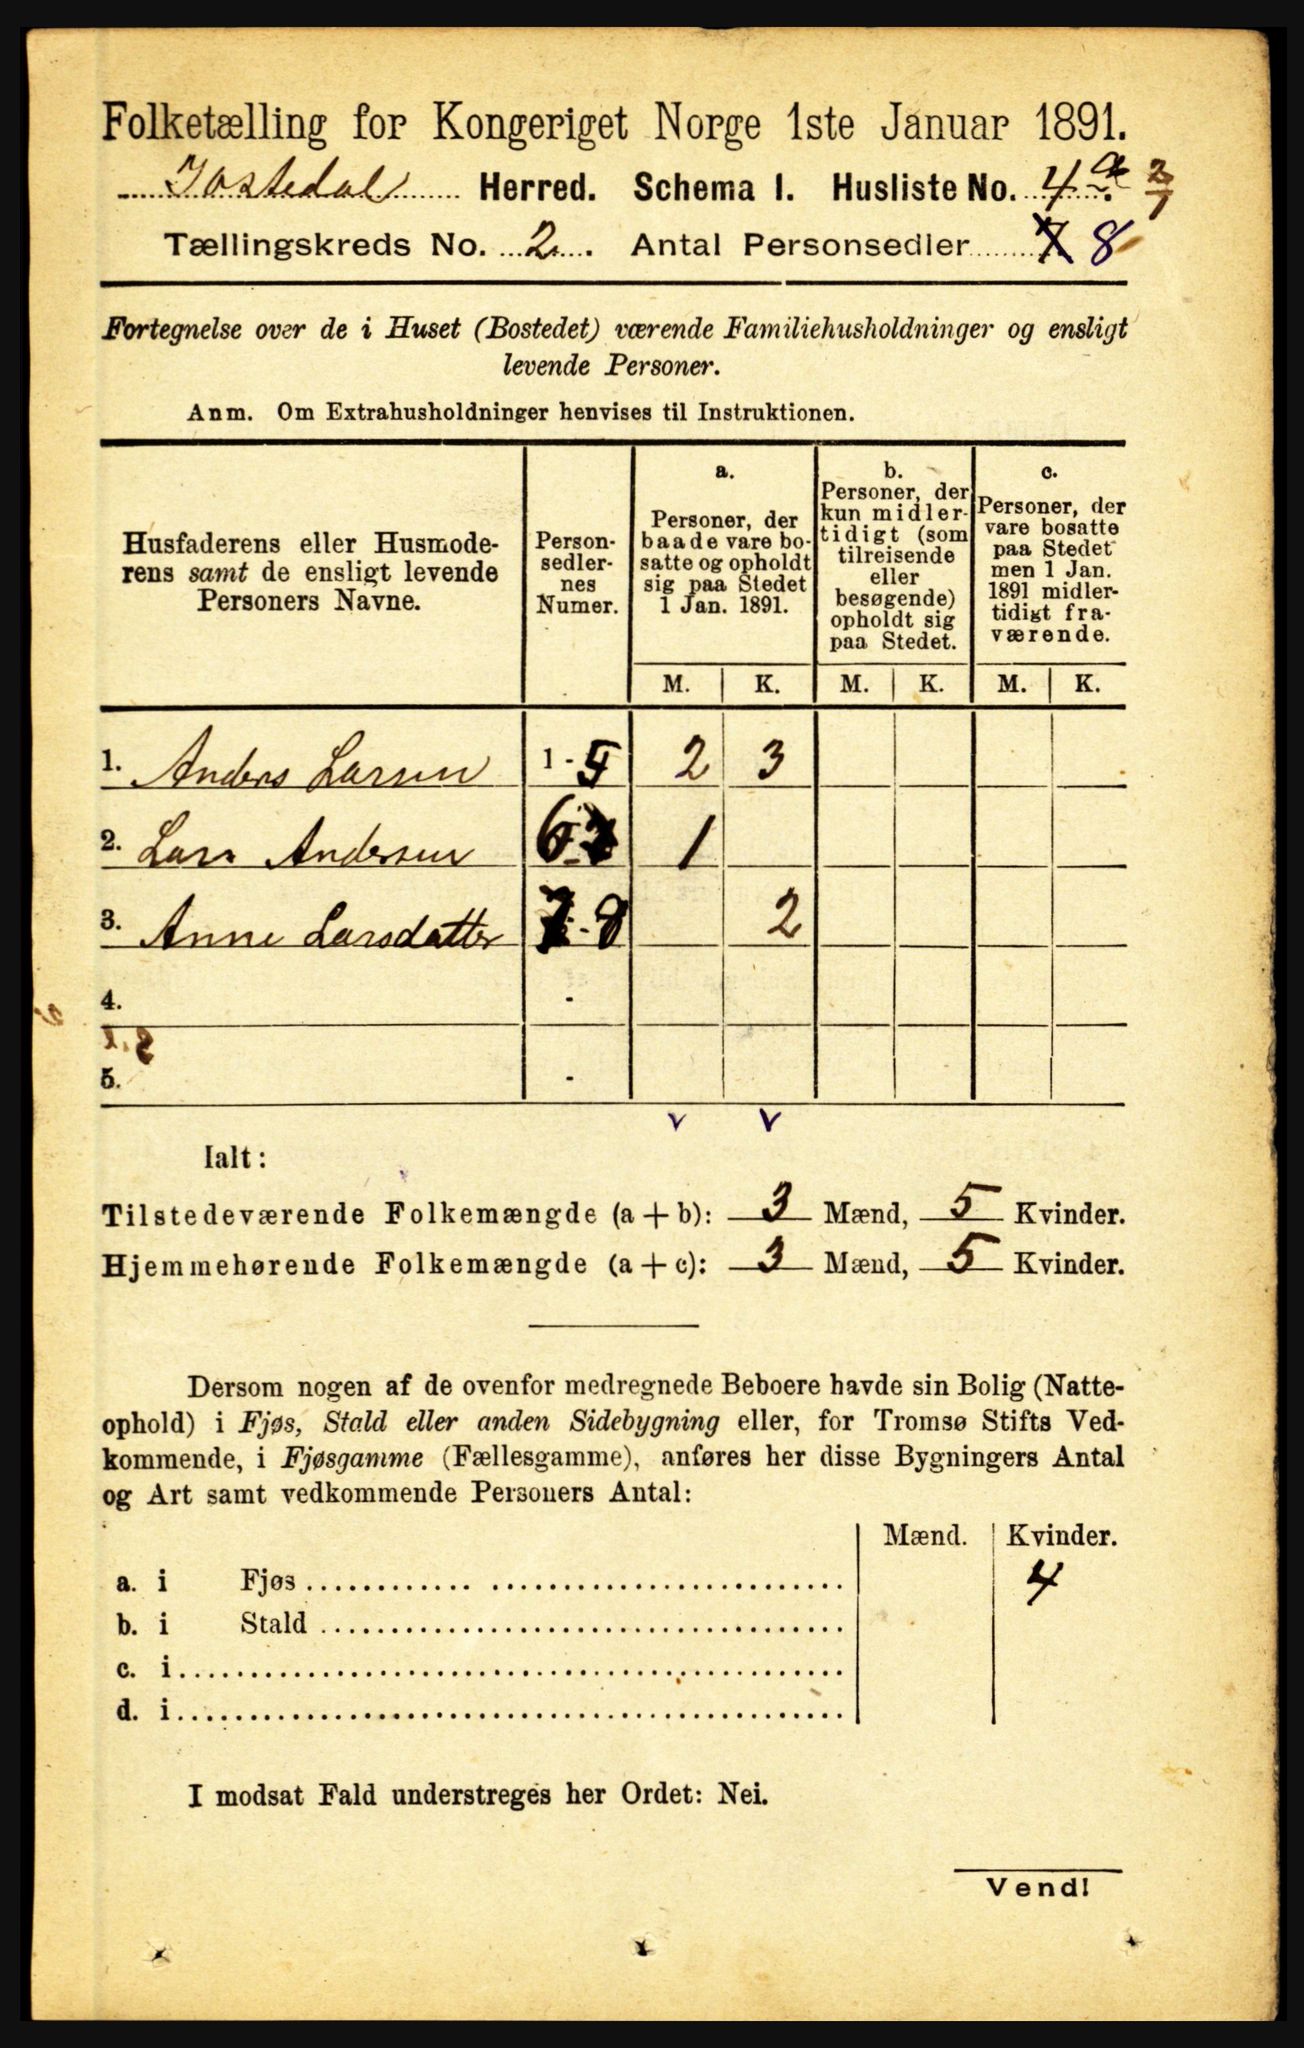 Folketælling for Kongeriget Norge 1ste Januar 1891.
Jostedal Herred. Schema I. Husliste No. 4 a 2/1
Tællingskreds No. 2. Antal Personsedler 7 8
Fortegnelse over de i Huset (Bostedet) værende Familiehusholdninger og ensligt
levende Personer.
Anm. Om Extrahusholdninger henvises til Instruktionen.
Husfaderens eller Husmode-
rens samt de ensligt levende
Personers Navne.
Person-
sedler-
nes
Numer.
a.
Personer, der
baade vare bo-
satte og opholdt
sig paa Stedet
1 Jan. 1891.
b.
Personer, der
kun midler-
tidigt (som
tilreisende
eller
besøgende)
opholdt sig
paa Stedet.
c.
Personer, der
vare bosatte
paa Stedet
men 1 Jan.
1891 midler-
tidigt fra-
værende.
M. K. M. K. M. K.
1. Anders Larsen 1 - 5 2 3
2. Lars Andersen 6 1
3. Anne Larsdatter 7 - 8 2
4. -
5. -
v v
Ialt:
Tilstedeværende Folkemængde (a + b): 3 Mænd, 5 Kvinder.
Hjemmehørende Folkemængde (a + c): 3 Mænd, 5 Kvinder.
Dersom nogen af de ovenfor medregnede Beboere havde sin Bolig (Natte-
ophold) i Fjøs, Stald eller anden Sidebygning eller, for Tromsø Stifts Ved-
kommende, i Fjøsgamme (Fællesgamme), anføres her disse Bygningers Antal
og Art samt vedkommende Personers Antal:
Mænd. Kvinder.
a. i Fjøs 4
b. i Stald
c. i
d. i
I modsat Fald understreges her Ordet: Nei.
Vend!